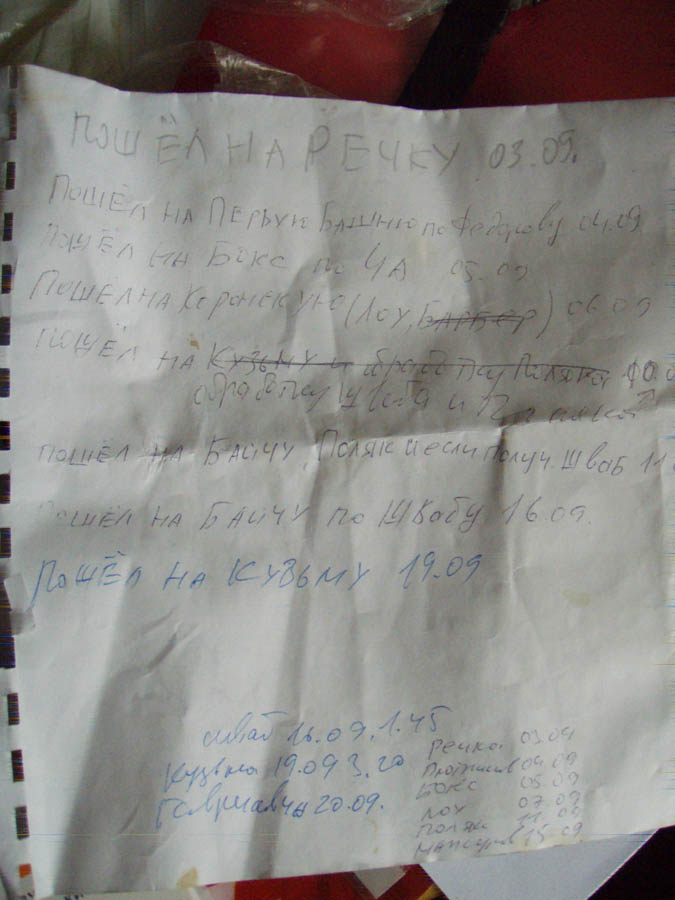 ПОШЁЛ НА РЕЧКУ 03.09.
ПОШЁЛ НА ПЕРВУЮ БАШНЮ по Федорову 04.09
ПОШЁЛ НА БОКС по ЧА 05.09
ПОШЁЛ НА (ЛОУ, БАРБЕР) 06.09
ПОШЁЛ НА КУЗЬМУ и обработку Поляка
обработку Шваба и
ПОШЁЛ НА БАЙЧУ, Поляк и если Получ. Шваб 11
ПОШЁЛ НА БАЙЧУ по Швабу 16.09.
ПОШЁЛ НА КУЗЬМУ 19.09
шваб 16.09. 1.45
Кузьма 19.09 3.20
20.09.
Речка 03.09
04.09
БОКС 05.09
ЛОУ 07.09
Поляк 11.09
15.09